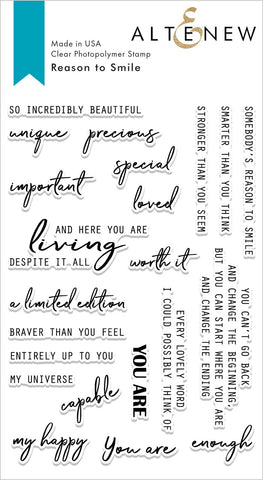 ALTENEW
Made in USA
Clear Photopolymer Stamp
Reason to Smile
SO INCREDIBLY BEAUTIFUL
unique
precious
special
important
loved
AND HERE YOU ARE
living
DESPITE IT ALL
worth it
a limited edition
BRAVER THAN YOU FEEL
ENTIRELY UP TO YOU
MY UNIVERSE
capable
my happy
You are
enough
YOU ARE
STRONGER THAN YOU SEEM
SMARTER THAN YOU THINK
SOMEBODY'S REASON TO SMILE
EVERY LOVELY WORD
I COULD POSSIBLY THINK OF
YOU CAN'T GO BACK
AND CHANGE THE BEGINNING,
BUT YOU CAN START WHERE YOU ARE
AND CHANGE THE ENDING